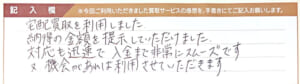 記入欄 ※今回ご利用いただきました買取サービスの感想を、手書きにてご記入お願いします。
宅配買取を利用しました
納得の金額を提示していただけました
対応も迅速で入金まで非常にスムーズです
又機会があれば利用させていただきます